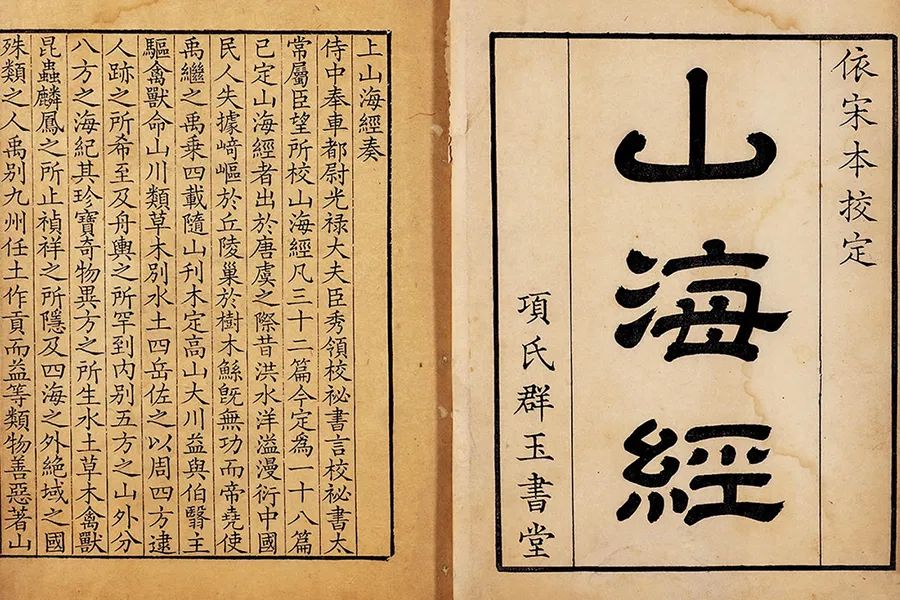 依宋本校定
山海經
項氏群玉書堂
上山海經奏
侍中奉車都尉光禄大夫臣秀領校祕書言校祕書太
常屬臣望所校山海經凡三十二篇今定為一十八篇
已定山海經者出於唐虞之際昔洪水洋溢漫衍中國
民人失據崎嶇於丘陵巢於樹木鯀旣無功而帝堯使
禹繼之禹乗四載隨山刋木定高山大川益與伯翳主
驅禽獸命山川類草木別水土四岳佐之以周四方逮
人跡之所希至及舟輿之所罕到内别五方之山外分
八方之海紀其珍寶奇物異方之所生水土草木禽獸
昆蟲麟鳳之所止禎祥之所隱及四海之外絶域之國
殊類之人禹別九州任土作貢而益等類物善惡著山